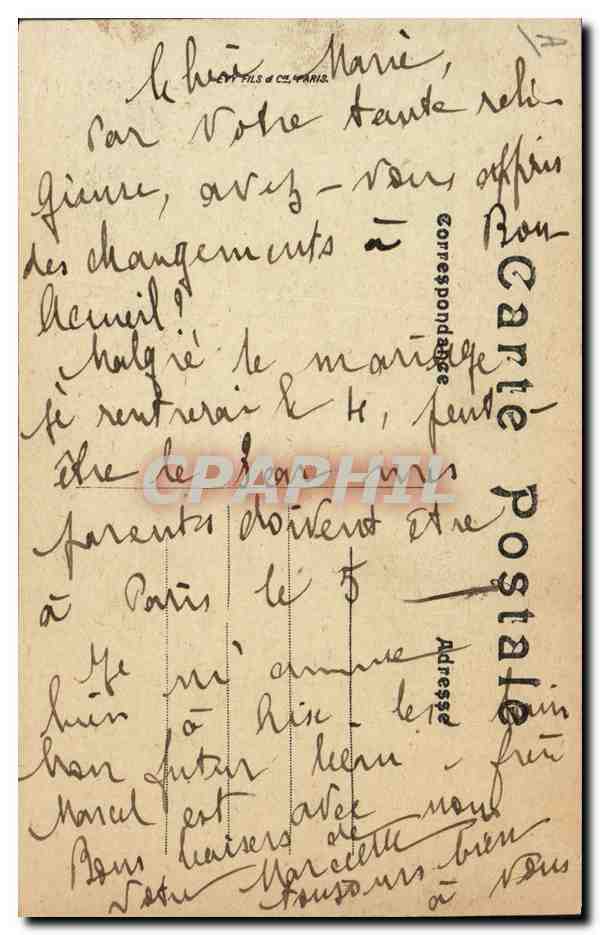 Chère Marie,
LEVY FILS & Cie, PARIS.
Par Votre tante reli-
gieuse, avez-vous appris
des changements à Bon
Accueil?
Malgré le mariage
je rentrerai le 4, peut-
être le 3 car mes
parents doivent être
à Paris le 5
Je m'amuse
bien à
Mon futur beau-frère
Marcel est avec nous
Bons baisers de
Votre Marcelle
toujours bien
à Vous
Carte Postale
Correspondance
Adresse
CPAPHIL